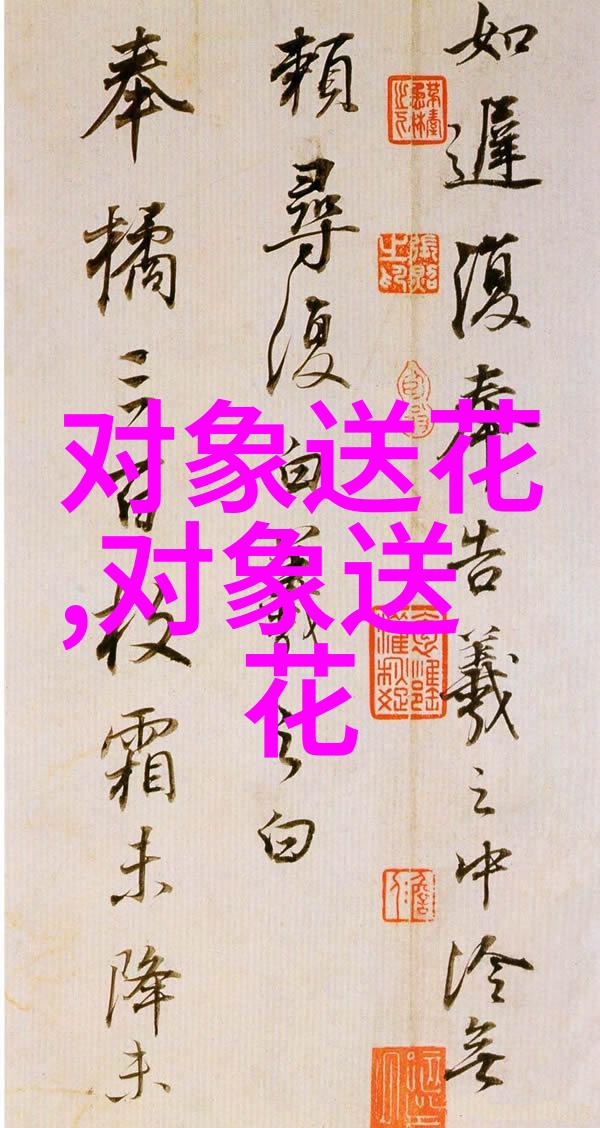 如遲復奉告羲之中冷無
賴尋復白羲之白
奉橘三百枚霜未降未
对象送花
,对象送
花